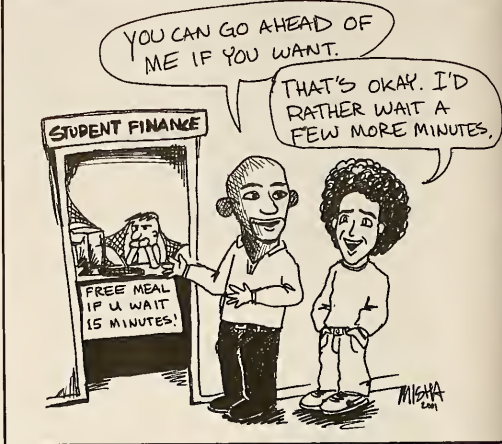 YOU CAN GO AHEAD OF
ME IF YOU WANT.
THAT'S OKAY. I'D
RATHER WAIT A
FEW MORE MINUTES.
STUDENT FINANCE
FREE MEAL
IF U WAIT
15 MINUTES!
MISHA
2001